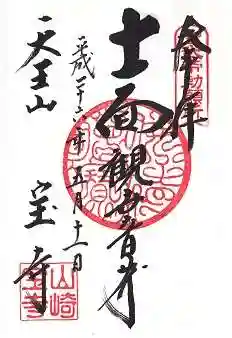 奉拝
十一面観世音菩薩
平成二十六年五月十一日
天王山 宝寺
山崎
宝寺